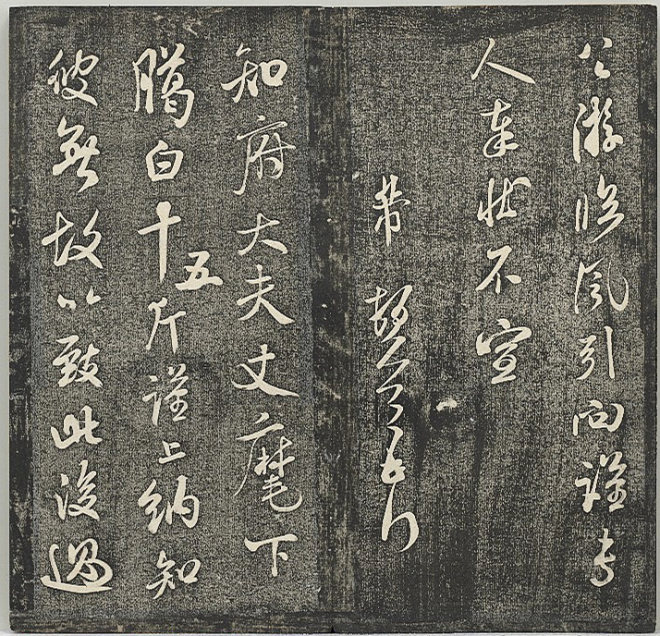 公游臨風引向謹專
人奉狀不宣
芾 頓首
知府大夫丈麾下
臈白十五斤謹上納知
彼無故以致此後過